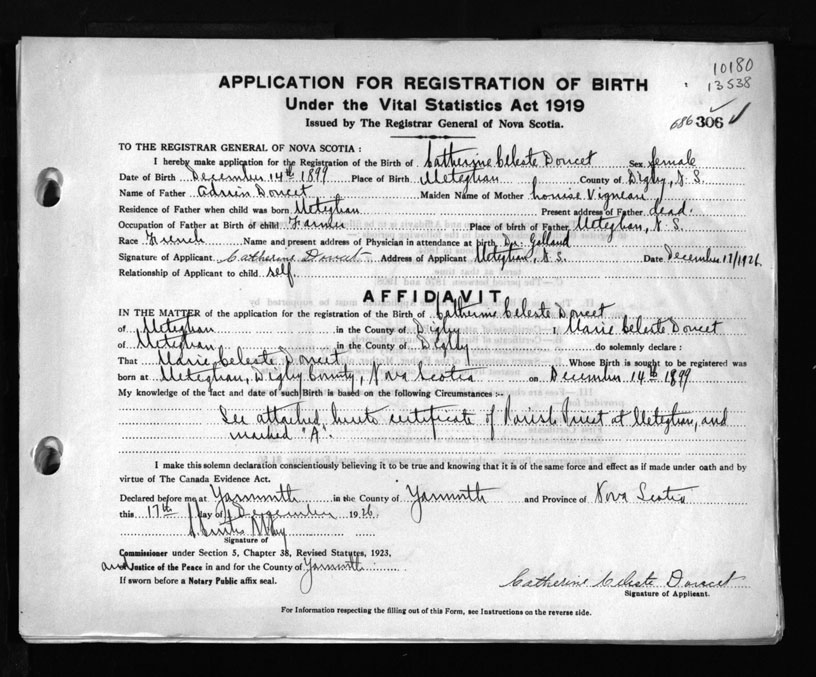 10180
13538
APPLICATION FOR REGISTRATION OF BIRTH
Under the Vital Statistics Act 1919
Issued by The Registrar General of Nova Scotia.
686 306
TO THE REGISTRAR GENERAL OF NOVA SCOTIA :
I hereby make application for the Registration of the Birth of Catherine Celeste Doucet Sex female
Date of Birth December 14th 1899 Place of Birth Meteghan County of Digby, N. S.
Name of Father Adrien Doucet Maiden Name of Mother Louise Vigneau
Residence of Father when child was born Meteghan Present address of Father dead.
Occupation of Father at Birth of child Farmer Place of birth of Father Meteghan, N. S.
Race French Name and present address of Physician in attendance at birth Dr. Galland
Signature of Applicant Catherine Doucet Address of Applicant Meteghan, N.S. Date December 17/1926
Relationship of Applicant to child self.
AFFIDAVIT
IN THE MATTER of the application for the registration of the Birth of Catherine Celeste Doucet
of Meteghan in the County of Digby I, Marie Celeste Doucet
of Meteghan in the County of Digby do solemnly declare :
That Marie Celeste Doucet Whose Birth is sought to be registered was
born at Meteghan, Digby County, Nova Scotia on December 14th 1899
My knowledge of the fact and date of such Birth is based on the following Circumstances :-
See attached hereto certificate of Parish Priest at Meteghan, and
marked "A".
I make this solemn declaration conscientiously believing it to be true and knowing that it is of the same force and effect as if made under oath and by
virtue of The Canada Evidence Act.
Declared before me at Yarmouth in the County of Yarmouth and Province of Nova Scotia
this 17th day of December 1926
Signature of
Commissioner under Section 5, Chapter 38, Revised Statutes, 1923,
and Justice of the Peace in and for the County of Yarmouth
If sworn before a Notary Public affix seal.
Catherine Celeste Doucet
Signature of Applicant.
For Information respecting the filling out of this Form, see Instructions on the reverse side.